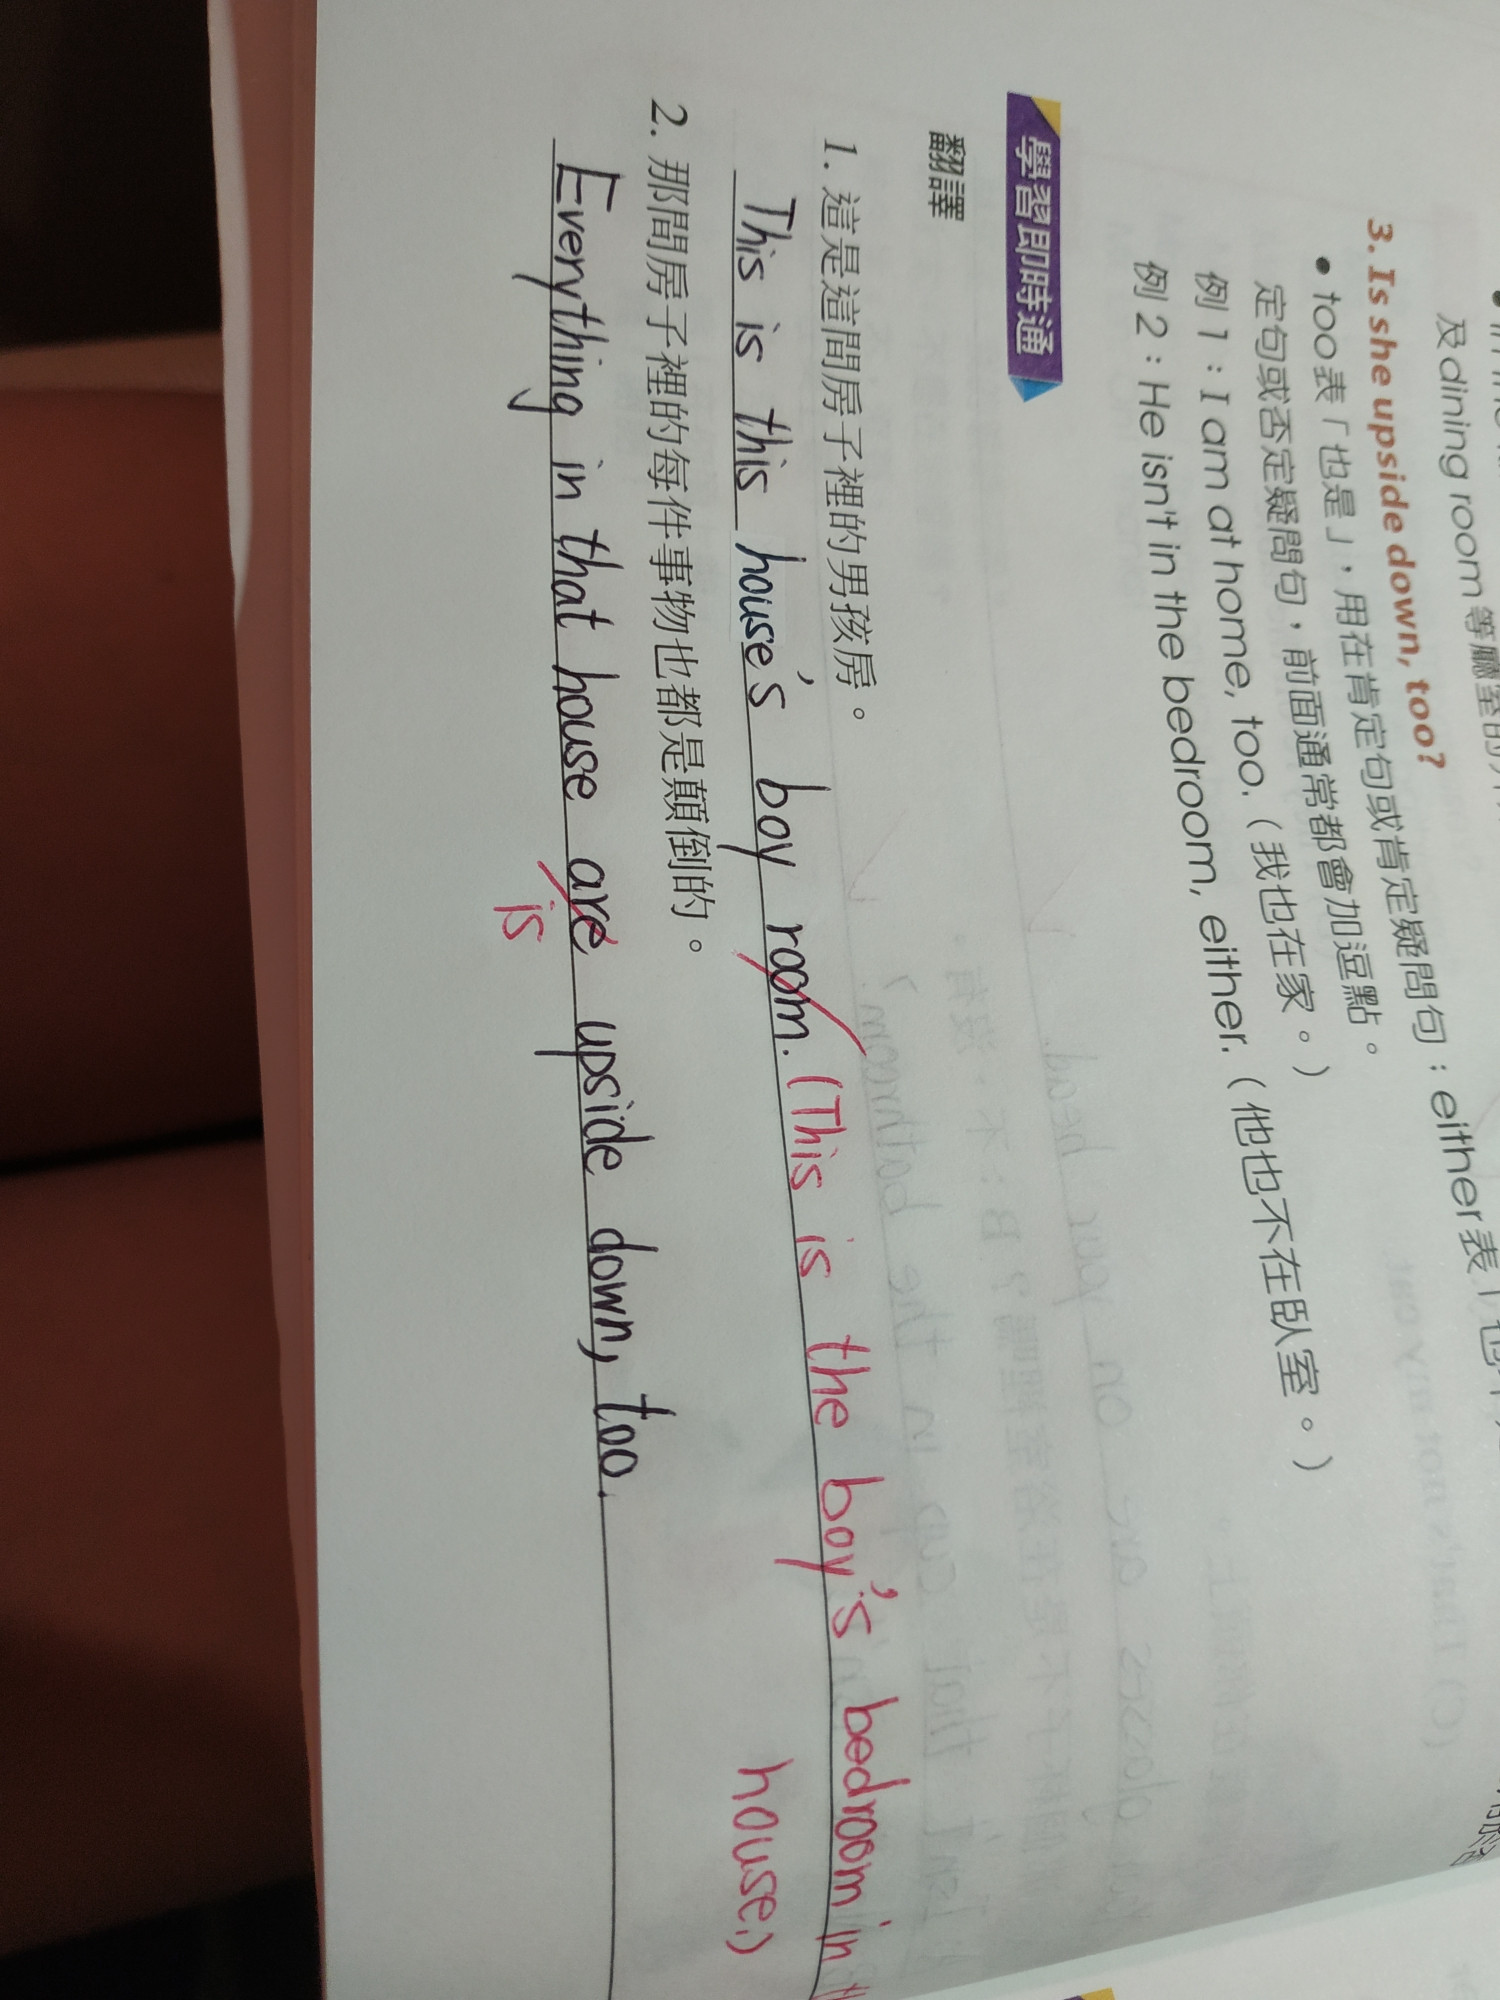 及dining room等廳室的
3. Is she upside down, too?
• too表「也是」，用在肯定句或肯定疑問句；either表「也不
定句或否定疑問句，前面通常都會加逗點。
例 1：I am at home, too.（我也在家。）
例 2：He isn't in the bedroom, either.（他也不在臥室。）
學習即時通
翻譯
1. 這是這間房子裡的男孩房。
This is this house's boy room. (This is the boy's bedroom in
house.)
2. 那間房子裡的每件事物也都是顛倒的。
Everything in that house are upside down, too.
is